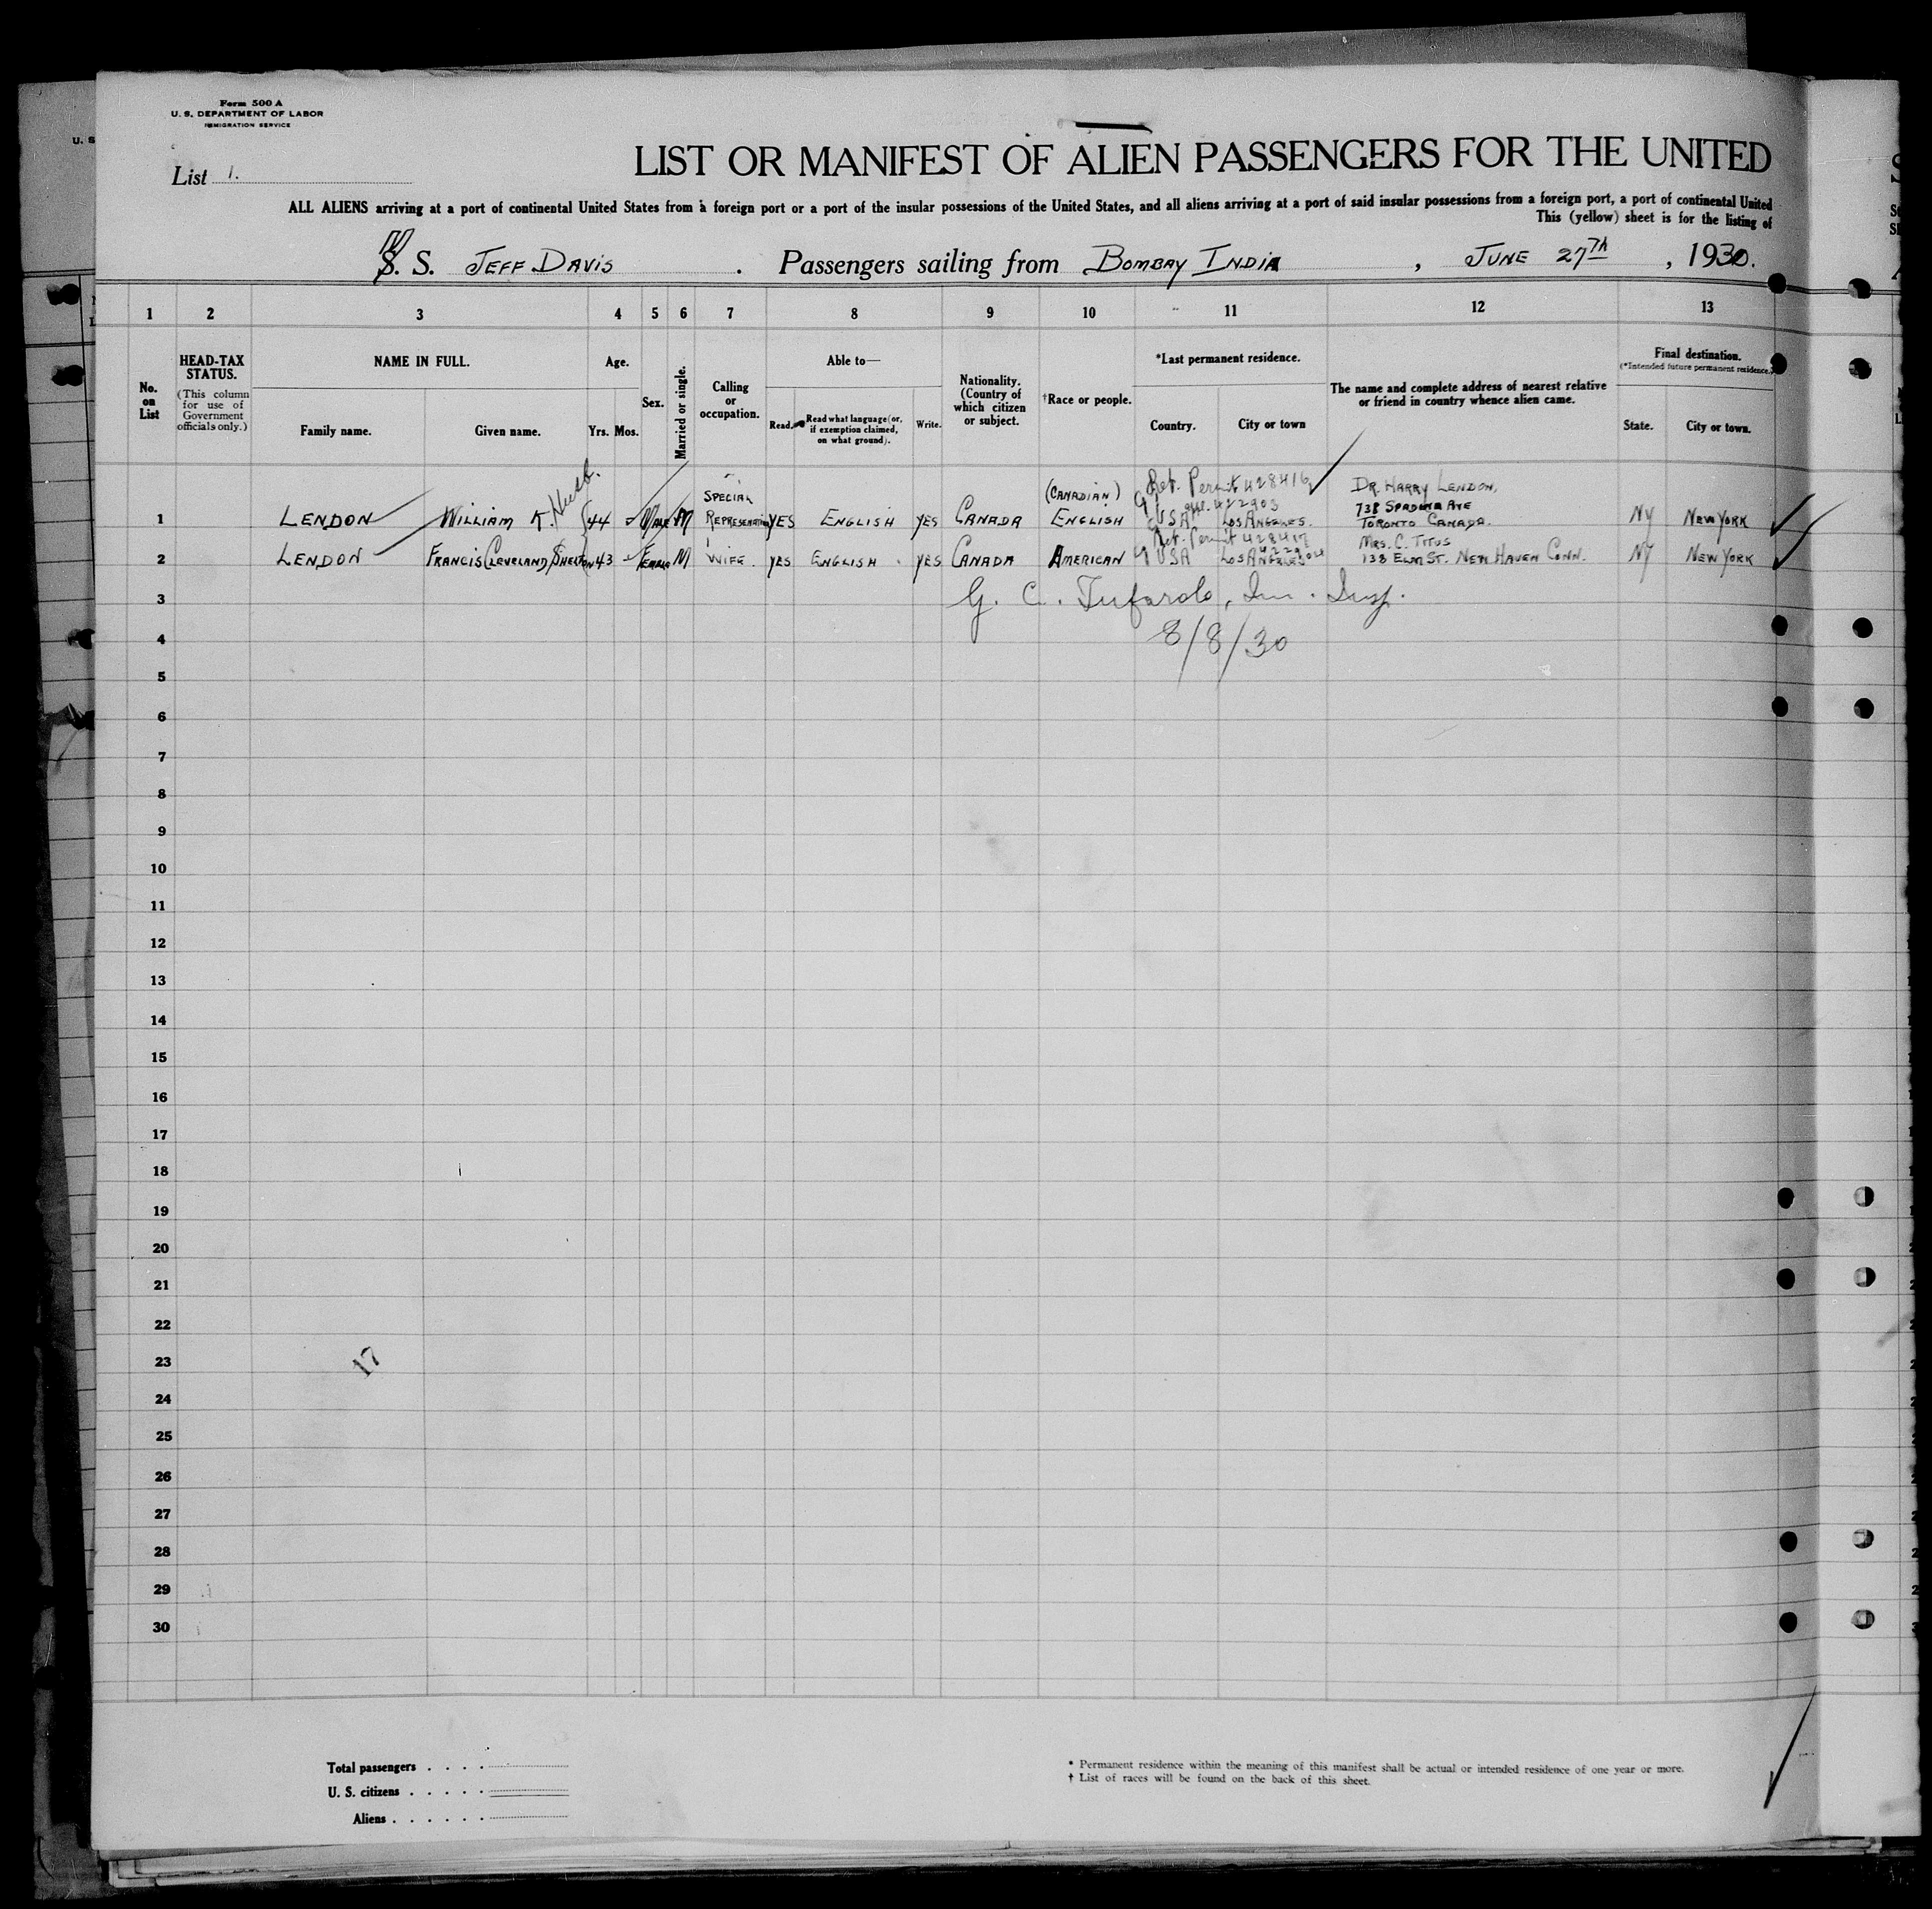 Form 500 A
U. S. DEPARTMENT OF LABOR
IMMIGRATION SERVICE
List 1.
LIST OR MANIFEST OF ALIEN PASSENGERS FOR THE UNITED
ALL ALIENS arriving at a port of continental United States from a foreign port or a port of the insular possessions of the United States, and all aliens arriving at a port of said insular possessions from a foreign port, a port of continental United
This (yellow) sheet is for the listing of
S. JEFF DAVIS . Passengers sailing from BOMBAY INDIA , JUNE 27Th , 1930.
1 2 3 4 5 6 7 8 9 10 11 12 13
No. on List
HEAD-TAX STATUS.
(This column for use of Government officials only.)
NAME IN FULL.
Family name. Given name.
Age.
Yrs. Mos.
Sex.
Married or single.
Calling or occupation.
Able to—
Read. Read what language (or, if exemption claimed, on what ground). Write.
Nationality. (Country of which citizen or subject.
†Race or people.
*Last permanent residence.
Country. City or town
The name and complete address of nearest relative or friend in country whence alien came.
Final destination.
(*Intended future permanent residence.)
State. City or town.
Husb. SPECIAL (CANADIAN) Ret. Permit 428416 DR. HARRY LENDON,
422903 738 SPADINA AVE
1 LENDON WILLIAM K. 44 MALE M REPRESENTATIVE YES ENGLISH YES CANADA ENGLISH USA LOS ANGELES. TORONTO CANADA. NY NEW YORK
Ret. Permit 428417 MRS. C. TITUS
2 LENDON FRANCIS CLEVELAND SHELTON 43 FEMALE M WIFE. YES ENGLISH YES CANADA AMERICAN USA LOS ANGELES 138 ELM ST. NEW HAVEN CONN. NY NEW YORK
3 G. C. Tufarolo, Im. Insp.
4 8/8/30
5
6
7
8
9
10
11
12
13
14
15
16
17
18
19
20
21
22
23 17
24
25
26
27
28
29
30
Total passengers . . . .
U. S. citizens . . . . .
Aliens . . . . . .
* Permanent residence within the meaning of this manifest shall be actual or intended residence of one year or more.
† List of races will be found on the back of this sheet.